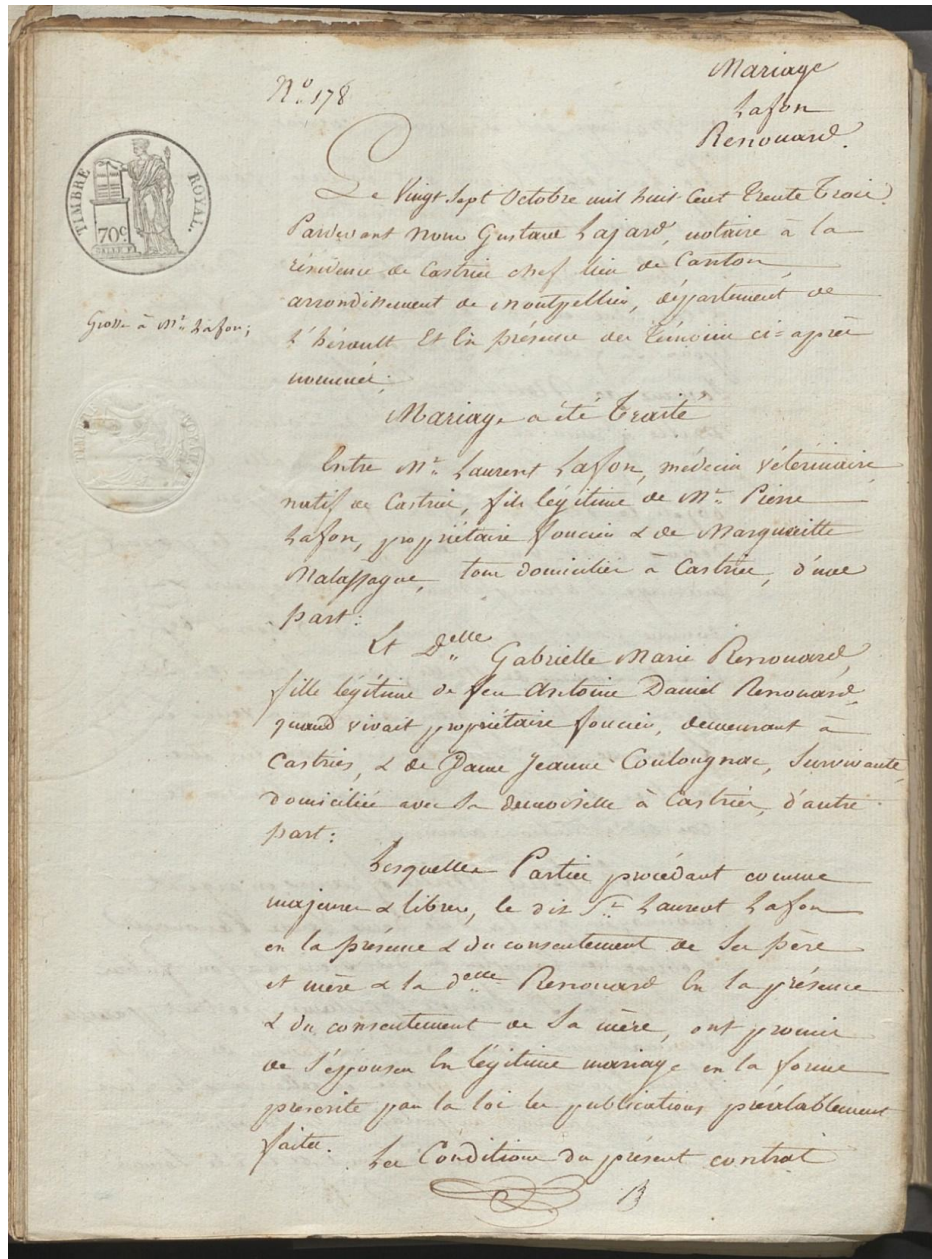 Mariage
Lafon
Renouard.
N.o 178
TIMBRE ROYAL.
70c
Grosse à Mr. Lafon;
Le Vingt Sept Octobre mil huit Cent Trente Trois.
Pardevant Nous Gustave Lajard, notaire à la
résidence de Castries chef lieu de Canton,
arrondissement de Montpellier, département de
l'hérault Et En présence des Témoins ci=après
nommés;
Mariage a été Traité
Entre Mr. Laurent Lafon, médecin vétérinaire,
natif de Castries, fils légitime de Mr. Pierre
Lafon, propriétaire foncier & de Margueritte
Malassagne, tous domiciliés à Castries, d'une
part:
Et Delle. Gabrielle Marie Renouard,
fille légitime de feu Antoine Daniel Renouard,
quand vivait propriétaire foncier, demeurant à
Castries, & de Dame Jeanne Coulougnac, Survivante,
domiciliée avec Sa demoiselle à Castries, d'autre
part:
Lesquelles Parties procédant comme
majeures & libres, le dit Sr. Laurent Lafon
en la présence & du consentement de Ses père
et mère & la delle. Renouard En la présence
& du consentement de Sa mère, ont promis
de S'épouser En légitime mariage en la forme
prescrite par la loi les publications préalablement
faites.
Les Conditions du présent contrat